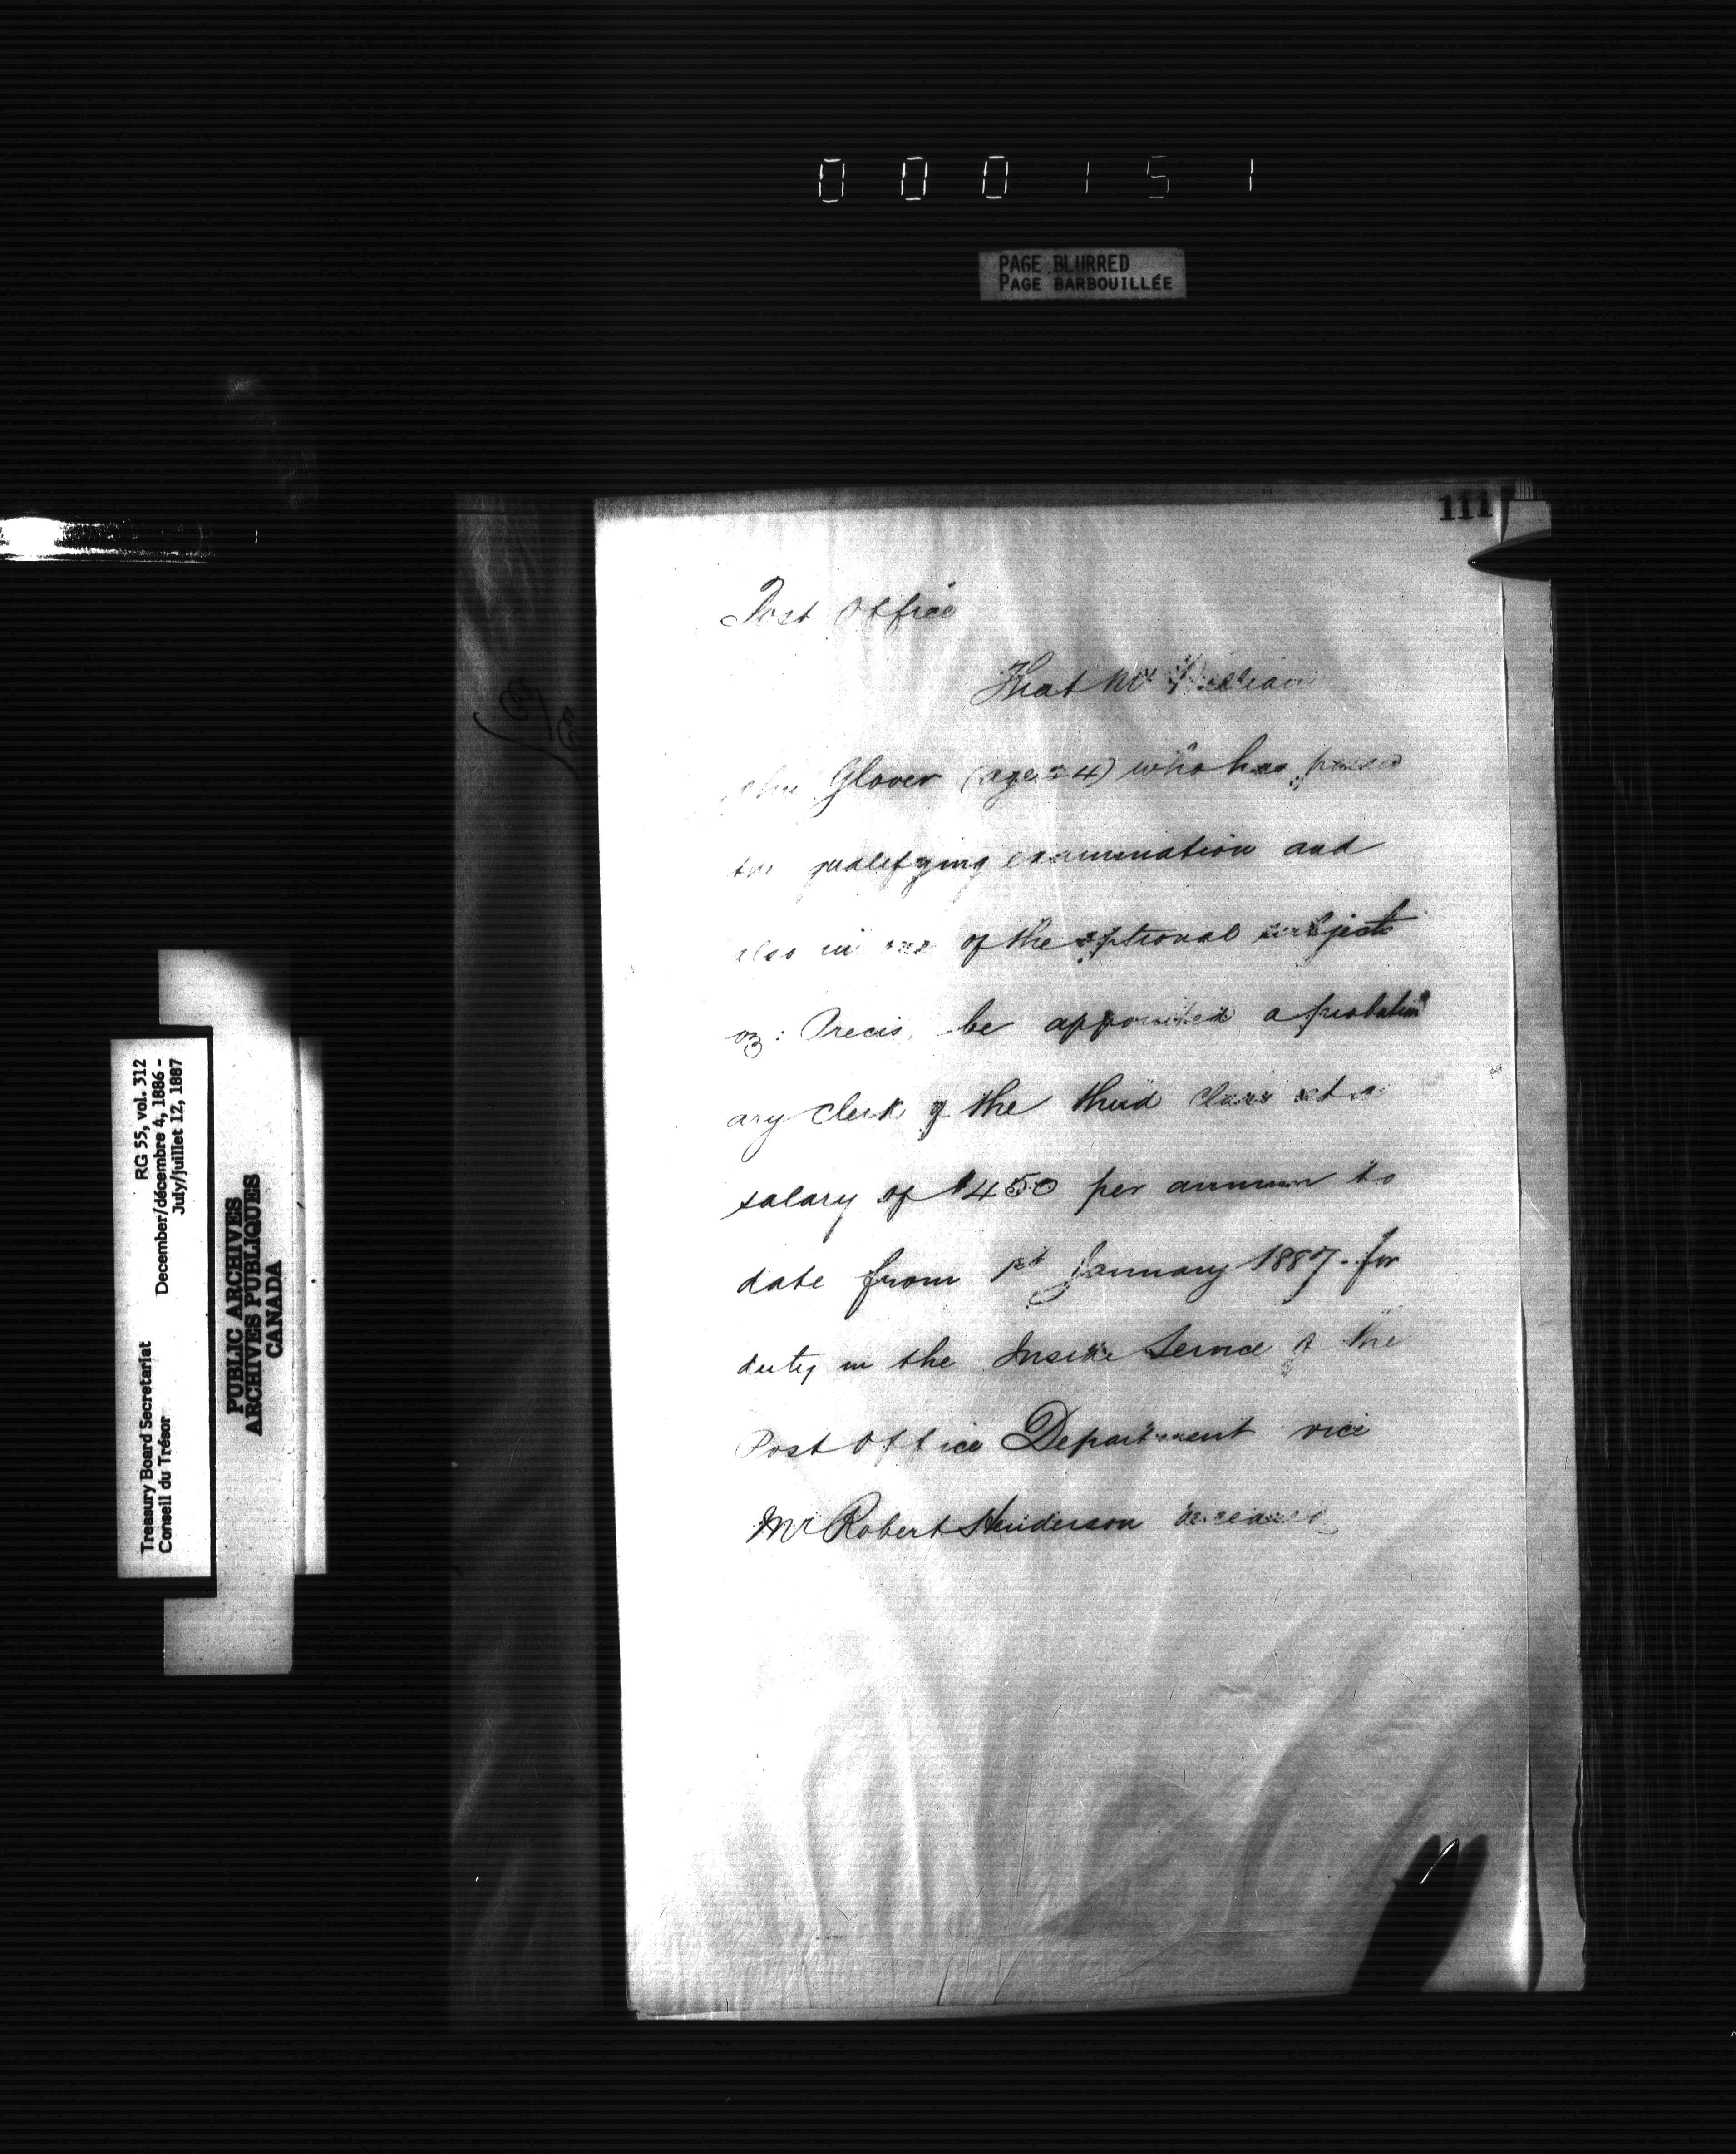 000151
PAGE BLURRED
PAGE BARBOUILLÉE
111
Post Office
That Mr William
Glover (age 24) who has passed
the qualifying examination and
also in one of the optional subjects
viz: Precis, be appointed a probation
ary clerk of the third class at a
salary of $450 per annum to
date from 1st January 1887. for
duty in the Inside Service of the
Post Office Department vice
Mr Robert Henderson deceased
Treasury Board Secretariat RG 55, vol. 312
Conseil du Trésor December/décembre 4, 1886 -
July/juillet 12, 1887
PUBLIC ARCHIVES
ARCHIVES PUBLIQUES
CANADA